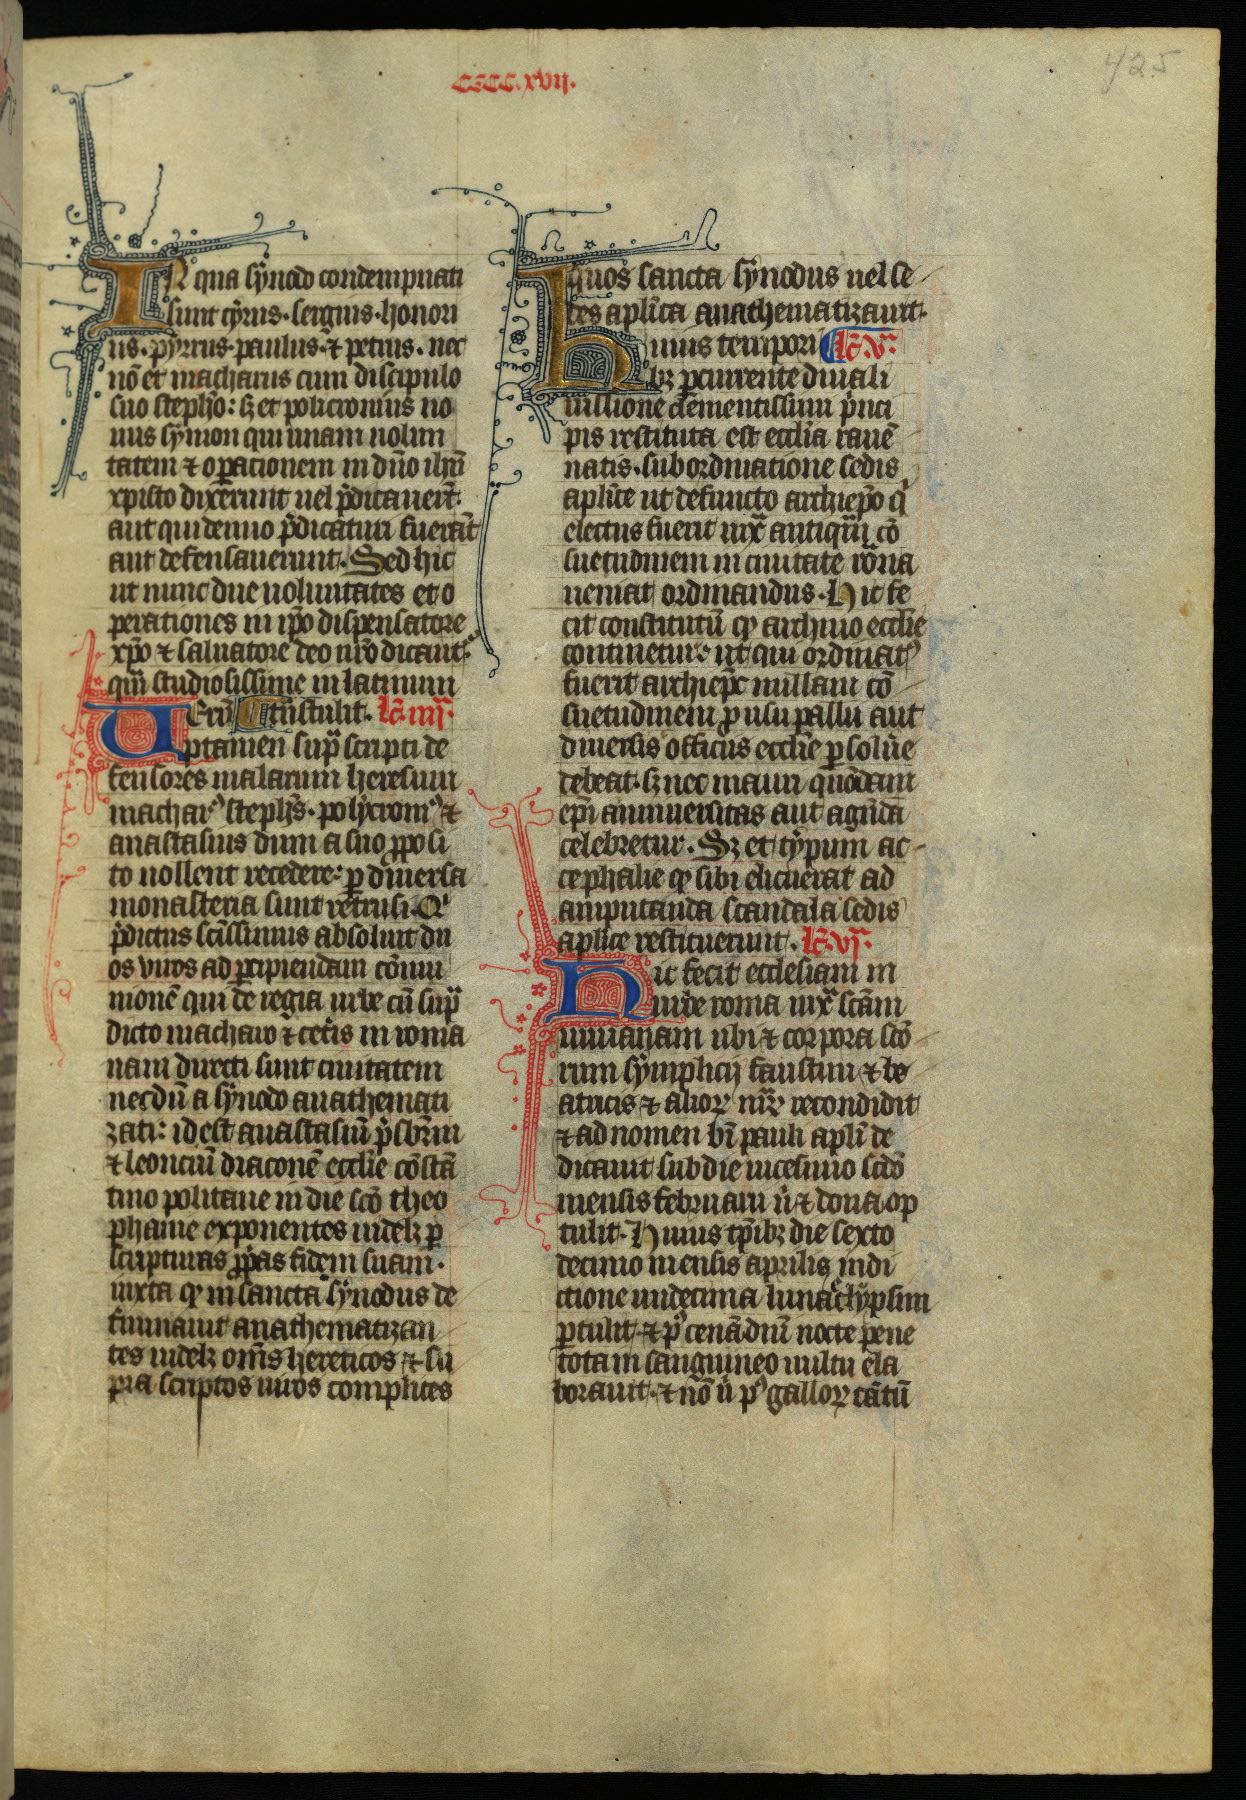 CCCC.xvij.
425
IN qua sẏnodo condempnati
sunt cẏrus. sergius. honori
us. pẏrrus. paulus. ⁊ petrus. nec
nō et macharius cum discipulo
suo stepħo: sꝫ et policronius no
uus sẏmon qui unam uolun
tatem ⁊ oꝑationem in dn̄o ih̄u
xp̄isto dixerunt uel p̄dicauer̄t.
aut qui denuo p̄dicaturi fuerāt
aut defensauerunt. Sed hic
ut nunc due uoluntates et o
perationes in ip̄o dispensatore
xp̄o ⁊ saluatore deo nr̄o dicant᷑.
qm̄ studiosissime in latinum
transtulit. lc̄. iiij.
Uerū
ptamen sup̄ scripti de
fensores malarum heresum
machariꝰ stepħs. polẏcroniꝰ ⁊
anastasius dum a suo ꝓposi
to nollent recedere: ꝑ diuersa
monasteria sunt retrusi. Qͥ
p̄dictus sc̄issimus absoluit du
os viros ad ꝑcipiendam cōmu
nionē qui de regia urbe cū sup̄
dicto machario ⁊ cet̄is in roma
nam directi sunt ciuitatem
necdū a sẏnodo anathemati
zati: id est anastasiū p̄sbr̄m
⁊ leonciū diaconē eccl̄ie cōstā
tino politane in die sc̄o theo
phanie exponentes uidelꝫ ꝑ
scripturas ꝓprias fidem suam.
iuxta qꝫ in sancta sẏnodus de
finiauit anathematizan
tes uidelꝫ om̄s hereticos ⁊ su
pra scriptos uiros complices
quos sancta sẏnodus uel se
des apl̄ica anathematizauit.
huius tempori lc̄. v.
bꝫ ꝑcurrente diuali
iussione clementissimi p̄nci
pis restituta est eccl̄ia rauē
natis. sub ordinatione sedis
apl̄ice ut defuncto archiep̄o qͥ
electus fuerit iuxͣ antiquā cō
suetudinem in ciuitate ro̅na
ueniat ordinandus. Hic fe
cit constitutū qꝫ archiuo eccl̄ie
continetur ut qui ordinatꝰ
fuerit archiep̄c nullam cō
suetudinem ꝓ usu pallii aut
diuersis officiis eccl̄ie ꝑsolūe
debeat. sꝫ nec mauri quōdam
ep̄i anniuersitas aut agn̄da
celebretur. Sꝫ et tẏpum ac-
cephalie qꝫ sibi elicuerat ad
amputanda scandala sedis
apl̄ice restituerunt. lc̄. vj.
Hic fecit ecclesiam in
urbe roma iuxͣ sc̄am
uiuianam ubi ⁊ corpora sc̄o
rum sẏmplicij faustini ⁊ be
atricis ⁊ alioꝝ mr̄ꝝ recondidit
⁊ ad nomen bī pauli apl̄i de
dicauit sub die uicesimo sc̄do
mensis februarii ū ⁊ dona op
tulit. Huius tp̄ibꝫ die sexto
decimo mensis aprilis indi
ctione undecima luna eclẏpsim
ꝑtulit. ⁊ pꝰ cenā dn̄i nocte pene
tota in sanguineo uultu ela
borauit. ⁊ nō ū pꝰ galloꝝ cātū